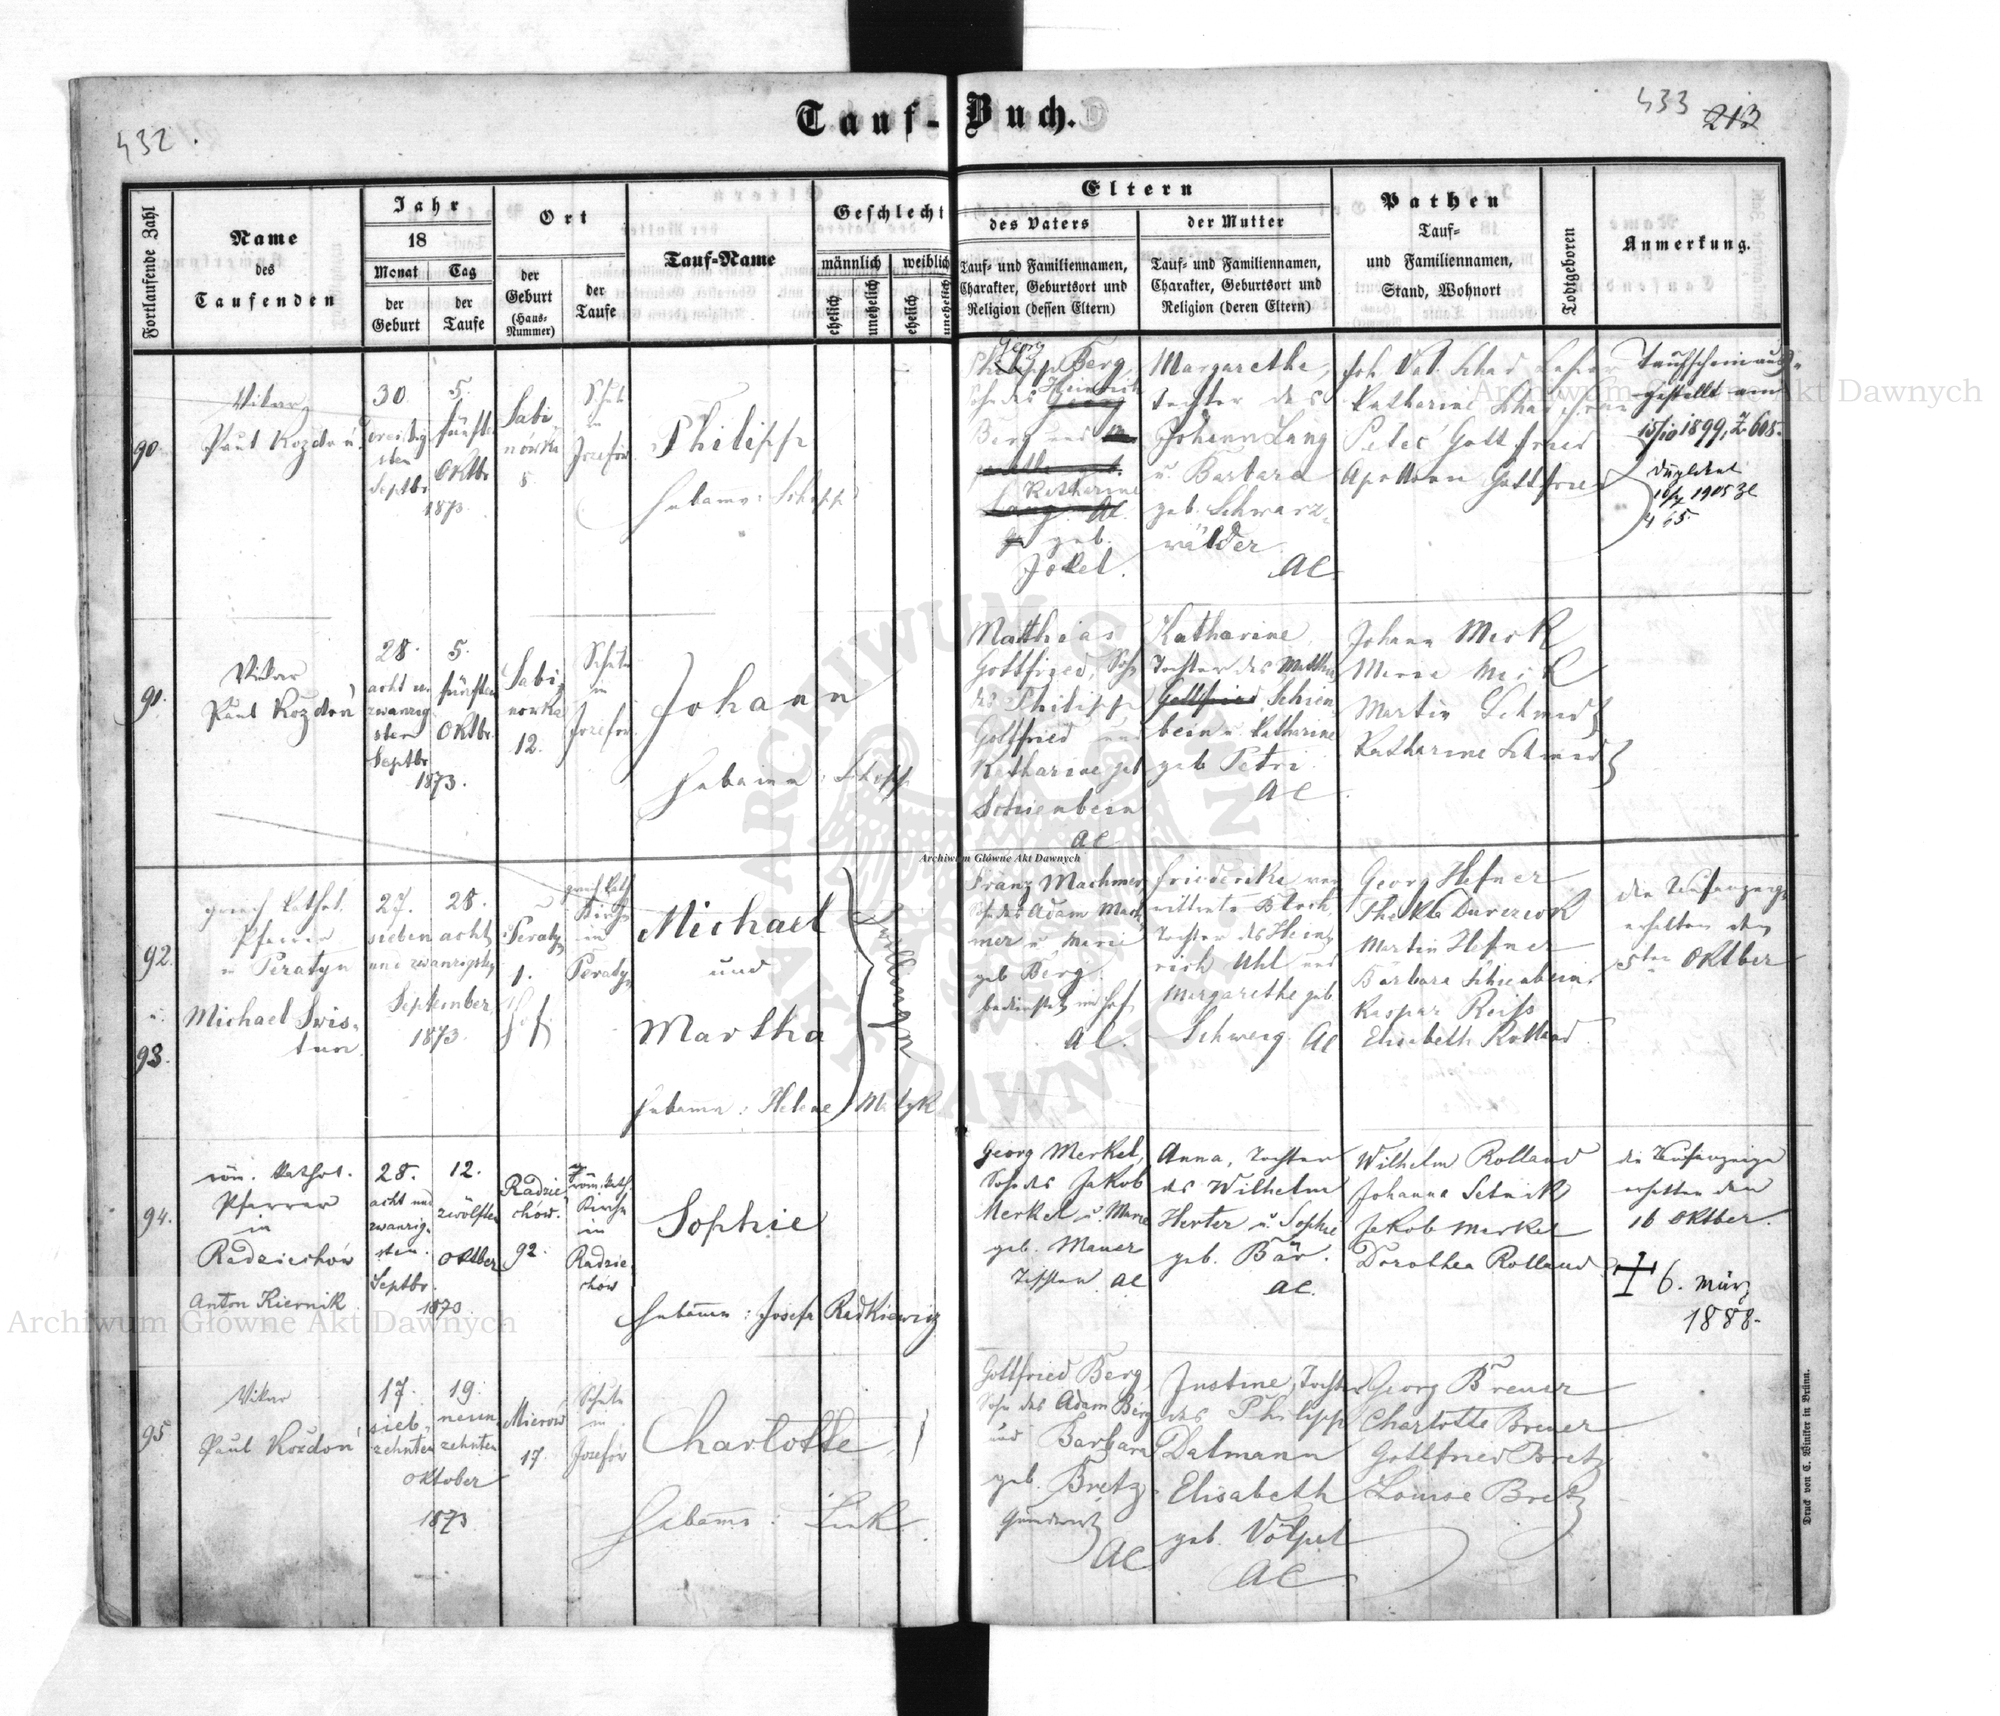 432.
433
213
Tauf-Buch.
Fortlaufende Zahl
Name
des
Taufenden
Jahr
18
Monat
der
Geburt
Tag
der
Taufe
Ort
der
Geburt
(Haus-
Nummer)
der
Taufe
Tauf-Name
Geschlecht
männlich
weiblich
ehelich
unehelich
ehelich
unehelich
Eltern
des Vaters
Tauf- und Familiennamen,
Charakter, Geburtsort und
Religion (dessen Eltern)
der Mutter
Tauf- und Familiennamen,
Charakter, Geburtsort und
Religion (deren Eltern)
Pathen
Tauf-
und Familiennamen,
Stand, Wohnort
Todtgeboren
Anmerkung.
90.
Vikar
Paul Kozdoń
30.
dreißig
sten
Septbr
5.
fünften
Oktbr
1873
Sabi
nówka
8
Schule
in
Josefów
Philipp
Hebamme: Schopp
Georg
Philipp Berg,
Sohn des Heinrich
Georg
Berg und
Katharine
Lang. AC.
geb.
Jokel.
Margarethe,
Tochter des
Johann Lang
u. Barbara
geb. Schwarz-
wälder
AC
Joh. Val. Schad
Katharine Schad
Peter Gottfried
Apollonia Gottfried
Taufschein aus-
gestellt am
15/10 1899, Z. 605.
Duplikat
1905 Zl
465.
91.
Vikar
Paul Kozdoń
28.
acht u.
zwanzig
sten
Septbr
5.
fünften
Oktbr.
1873.
Sabi-
nowka
12.
Schule
in
Josefów
Johann
Hebamme: Schopp
Matthias
Gottfried, Sohn
des Philipp
Gottfried und
Katharine geb
Schienbein
AC
Katharine,
Tochter des Matthias
Gottfried Schien
bein u. Katharine
geb Petri
AC
Johann Merk
Marie Merk
Martin Schmidt
Katharine Schmidt
92.
u.
93.
griech. Kathol.
Pfarrer
in Peratyn
Michael Swis-
tun
27.
sieben
28.
acht
und zwanzigsten
September
1873
Peratyn
1.
Hof
griech. Kath
Kirche
in
Peratyn
Michael
und
Martha
Zwillingen
Hebamme: Helene Matyk
Franz Machmer,
Sohn des Adam Mach-
mer u. Marie
geb Berg.
bedienstet im Hof.
AC.
Friederike ver
wittwete Bloch,
Tochter des Hein-
rich Uhl und
Margarethe geb
Schwerg AC
Georg Hefner
Thekla
Martin Hefner
Barbara Schienbein.
Kaspar Reiss
Elisabeth Rolland
die Taufanzeige
erhalten den
5ten Oktber
94.
röm. Kathol.
Pfarrer
in
Radziechów
Anton Kiernik
28.
acht und
zwanzig-
sten.
Septbr.
12.
zwölften
Oktber
1873
Radzie
chów.
92.
röm. Kath.
Kirche
in
Radzie-
chów
Sophie
Hebamme: Josefa Radkiewicz
Georg Merkel,
Sohn des Jakob
Merkel u. Marie
geb. Mauer
AC
Anna, Tochter
des Wilhelm
Herter u. Sophie
geb. Bär.
AC.
Wilhelm Rolland
Johanna Setnik
Jakob Merkel
Dorothea Rolland
die Taufanzeige
erhalten den
16 Oktber.
6. März
1888.
95
Vikar
Paul Kozdoń
17.
sieb-
zehnten
19.
neun
zehnten
Oktober
1873
Mierów
17.
Schule
in
Josefów
Charlotte
Hebamme: Link.
Gottfried Berg,
Sohn des Adam Berg
und Barbara
geb. Bretz
AC
Justine, Tochter
des Philipp
Dalmann
Elisabeth
geb. Völpel
AC
Georg Breuer
Charlotte Breuer
Gottfried Bretz
Louise Bretz
Druck von C. Winiker in Brünn.
Archiwum Główne Akt Dawnych
Archiwum Główne Akt Dawnych
Archiwum Główne Akt Dawnych
ARCHIWUM GŁÓWNE AKT DAWNYCH